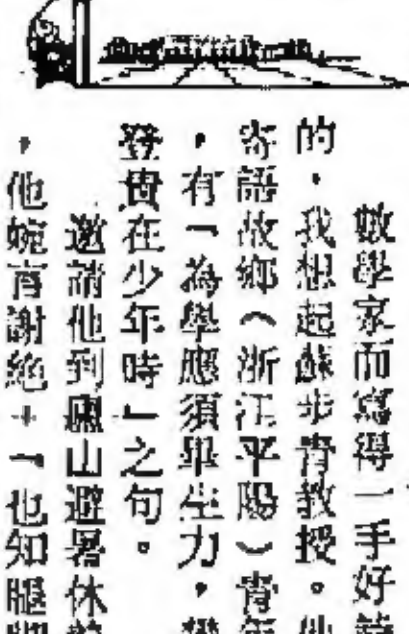 數學家而寫得一手好詩
的，我想起蘇步青教授。他
寄語故鄉（浙江平陽）青年
，有「為學應須畢生力，攀
登貴在少年時」之句。
邀請他到廬山避暑休養
，他婉言謝絕：「也知腿腳